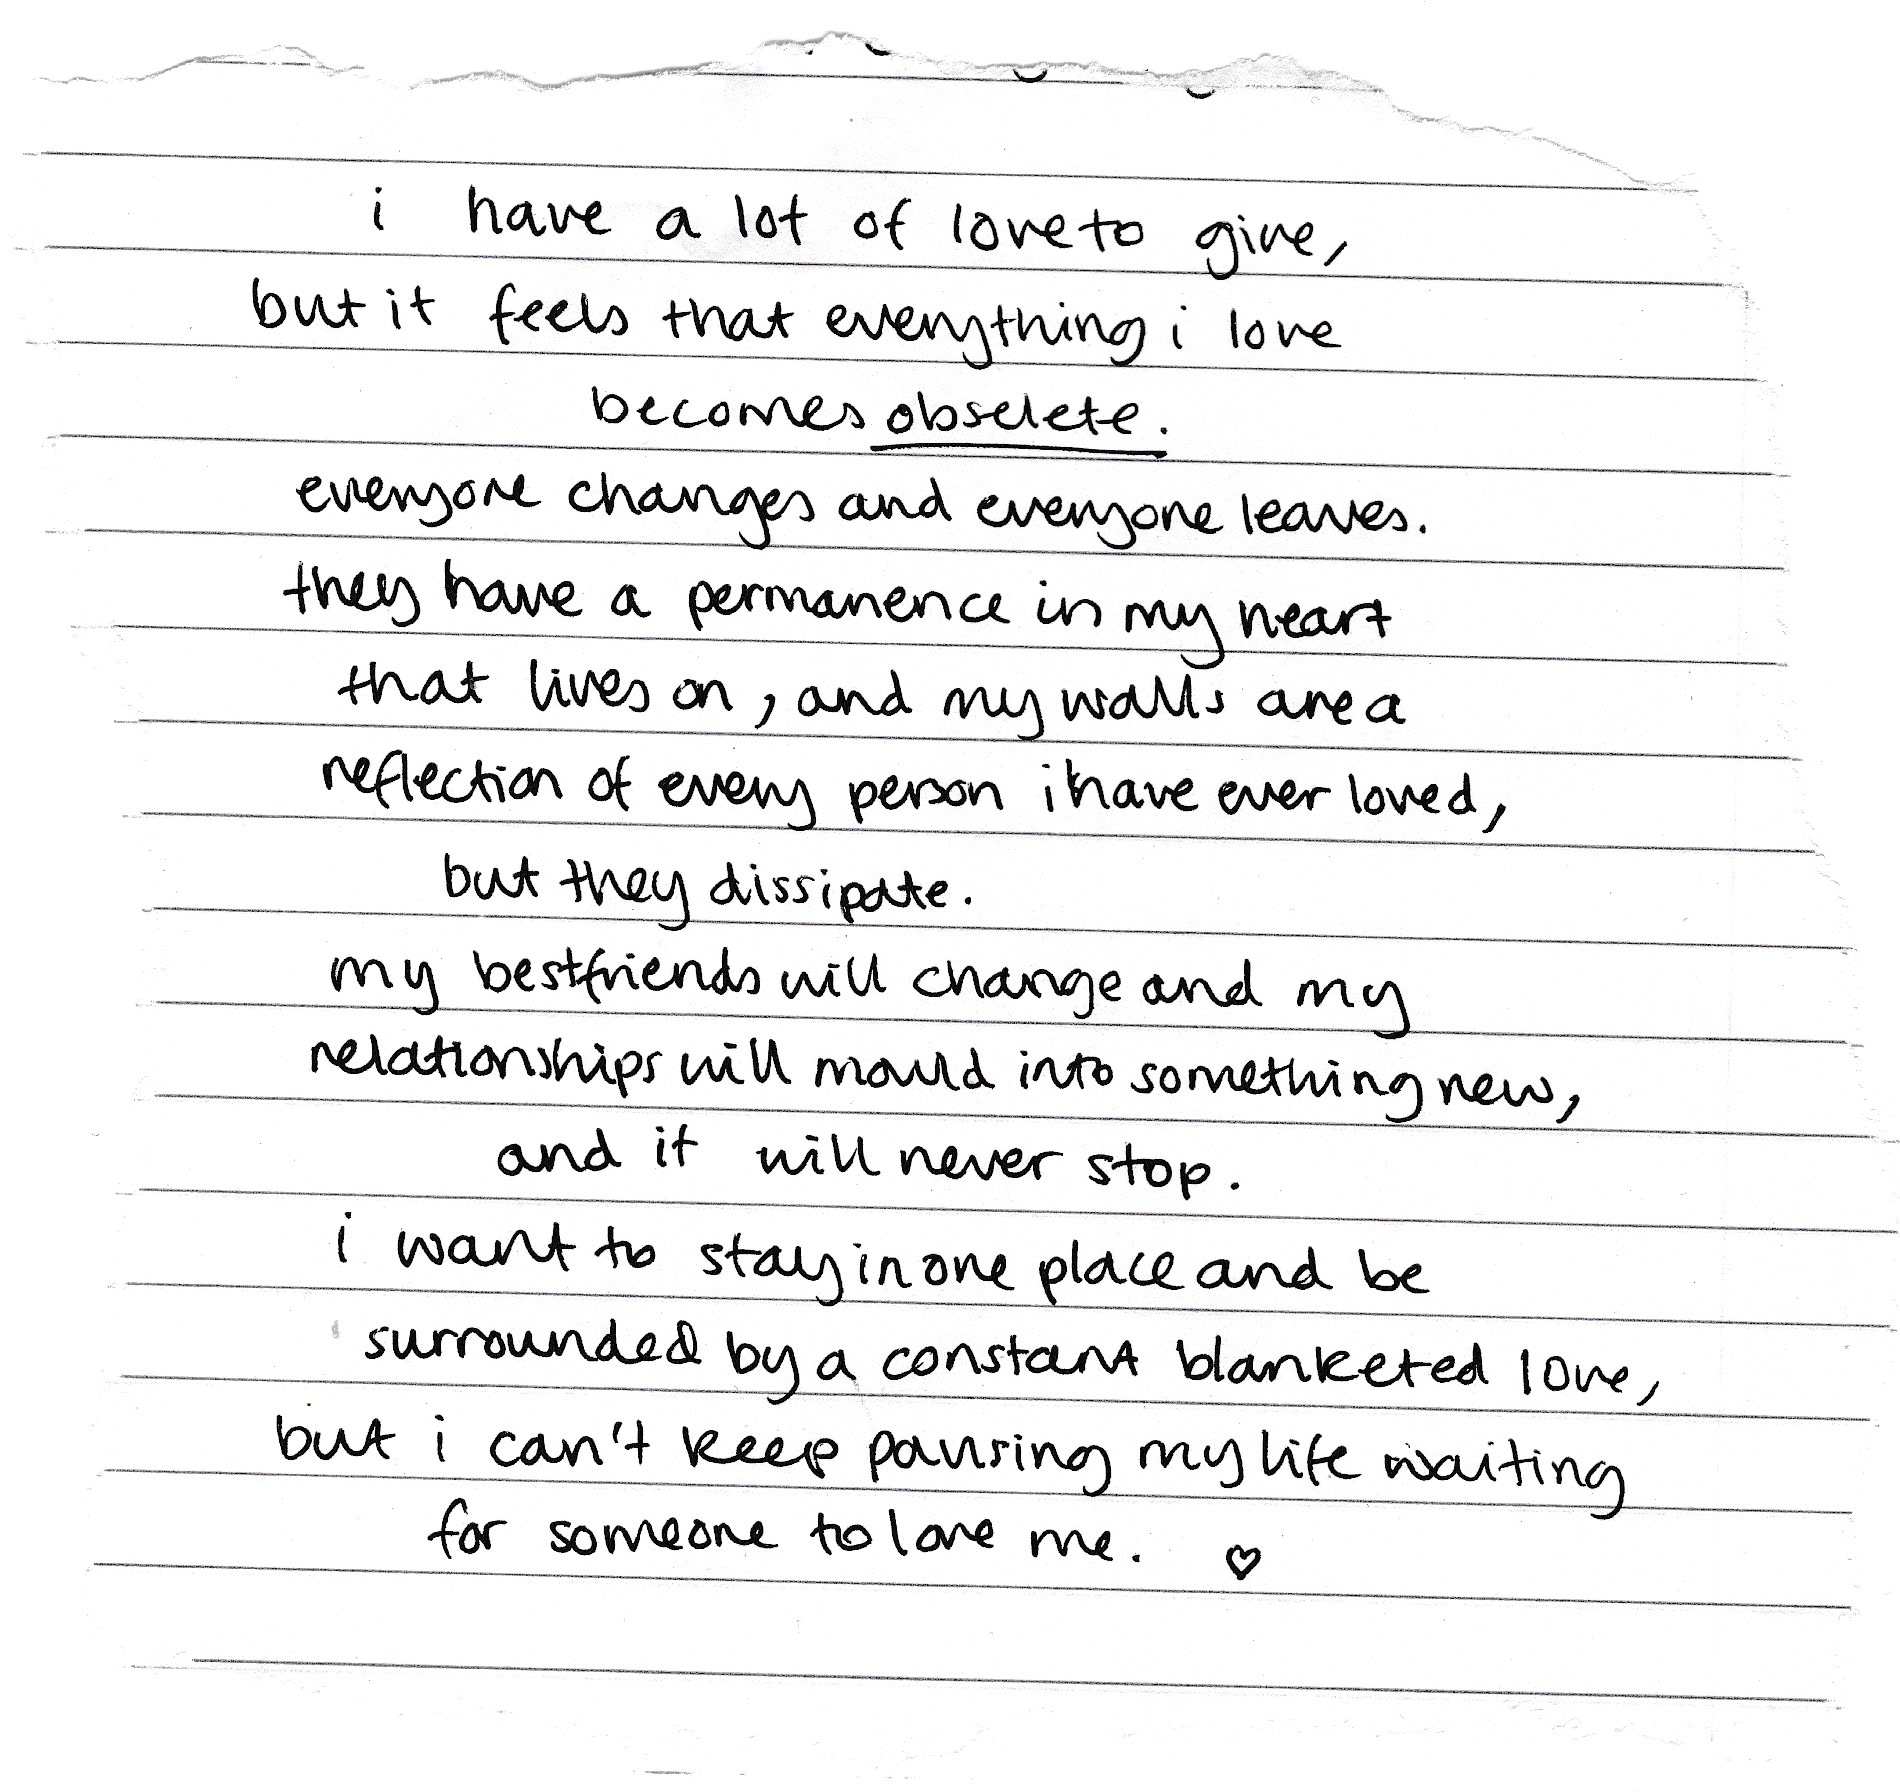 i have a lot of love to give,
but it feels that everything i love
becomes obselete.
everyone changes and everyone leaves.
they have a permanence in my heart
that lives on, and my walls are a
reflection of every person i have ever loved,
but they dissipate.
my bestfriends will change and my
relationships will mould into something new,
and it will never stop.
i want to stay in one place and be
surrounded by a constant blanketed love,
but i can't keep pausing my life waiting
for someone to love me. ♡